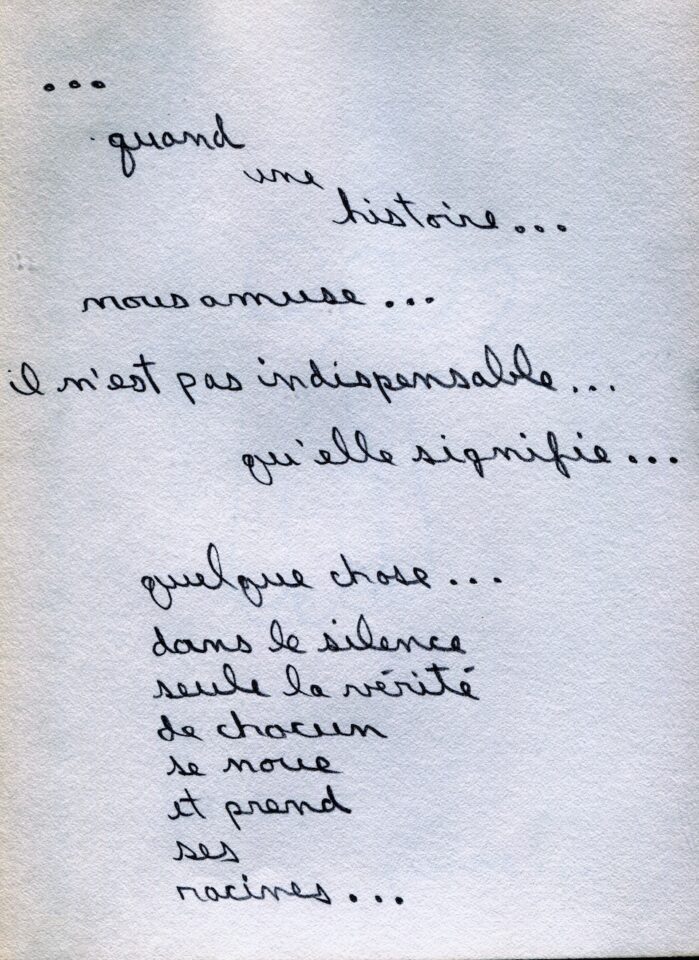 ...
quand
une
histoire...
nous amuse...
il n'est pas indispensable...
qu'elle signifie...
quelque chose...
dans le silence
seule la vérité
de chacun
se noue
et prend
ses
racines...